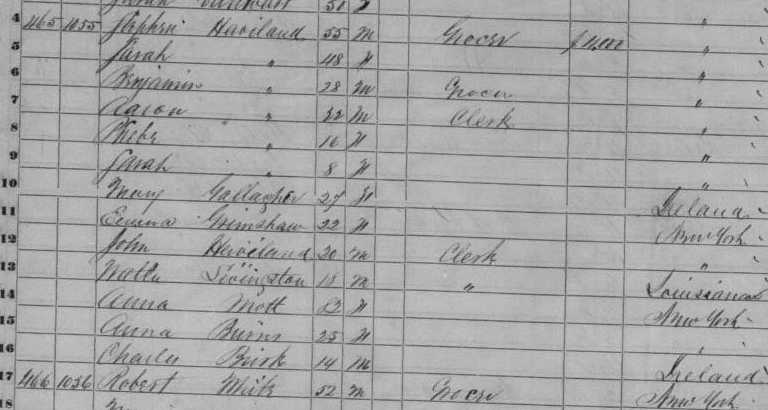 50
4 465 1055 Stephen Haviland 55 M Grocer $ "
5 Sarah " 48 F "
6 Benjamin " 28 M Grocer "
7 Aaron " 22 M Clerk "
8 Phebe " 16 F "
9 Sarah " 8 F "
10 Mary Gallagher 27 F Ireland
11 Emma Grimshaw 22 F New York
12 John Haviland 20 M Clerk "
13 Livingston 18 M " Louisiana
14 Anna Mott F New York
15 Anna Burns 25 F "
16 Charles 14 M Ireland
17 466 1056 Robert White 52 M Grocer New York
18